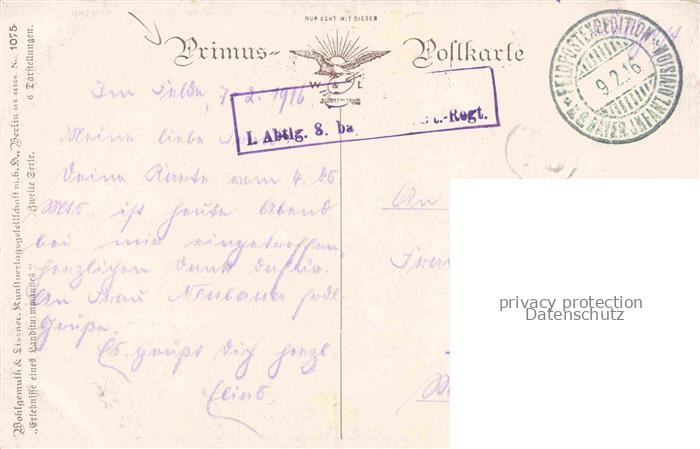 NUR ECHT MIT DIESEM
Primus- Postkarte
W & L
Im Felde, 7.2.1916
I. Abtlg. 8. ba t.-Regt.
FELDPOSTEXPEDITION
9.2.16
BAYER. INFANT.
Meine liebe
Deine Karte vom 4. ds
Mts. ist heute Abend
bei mir eingetroffen
herzlichen Dank dafür.
An Frau Neubauer frdl.
Grüße.
Es grüßt Dich herzl.
An
Frau
privacy protection
Datenschutz
Wohlgemuth & Lissner, Kunstverlagsgesellschaft m.b.H., Berlin No. 1075
"Erlebnisse eines Landsturmmannes" Zweite Serie. 6 Darstellungen.